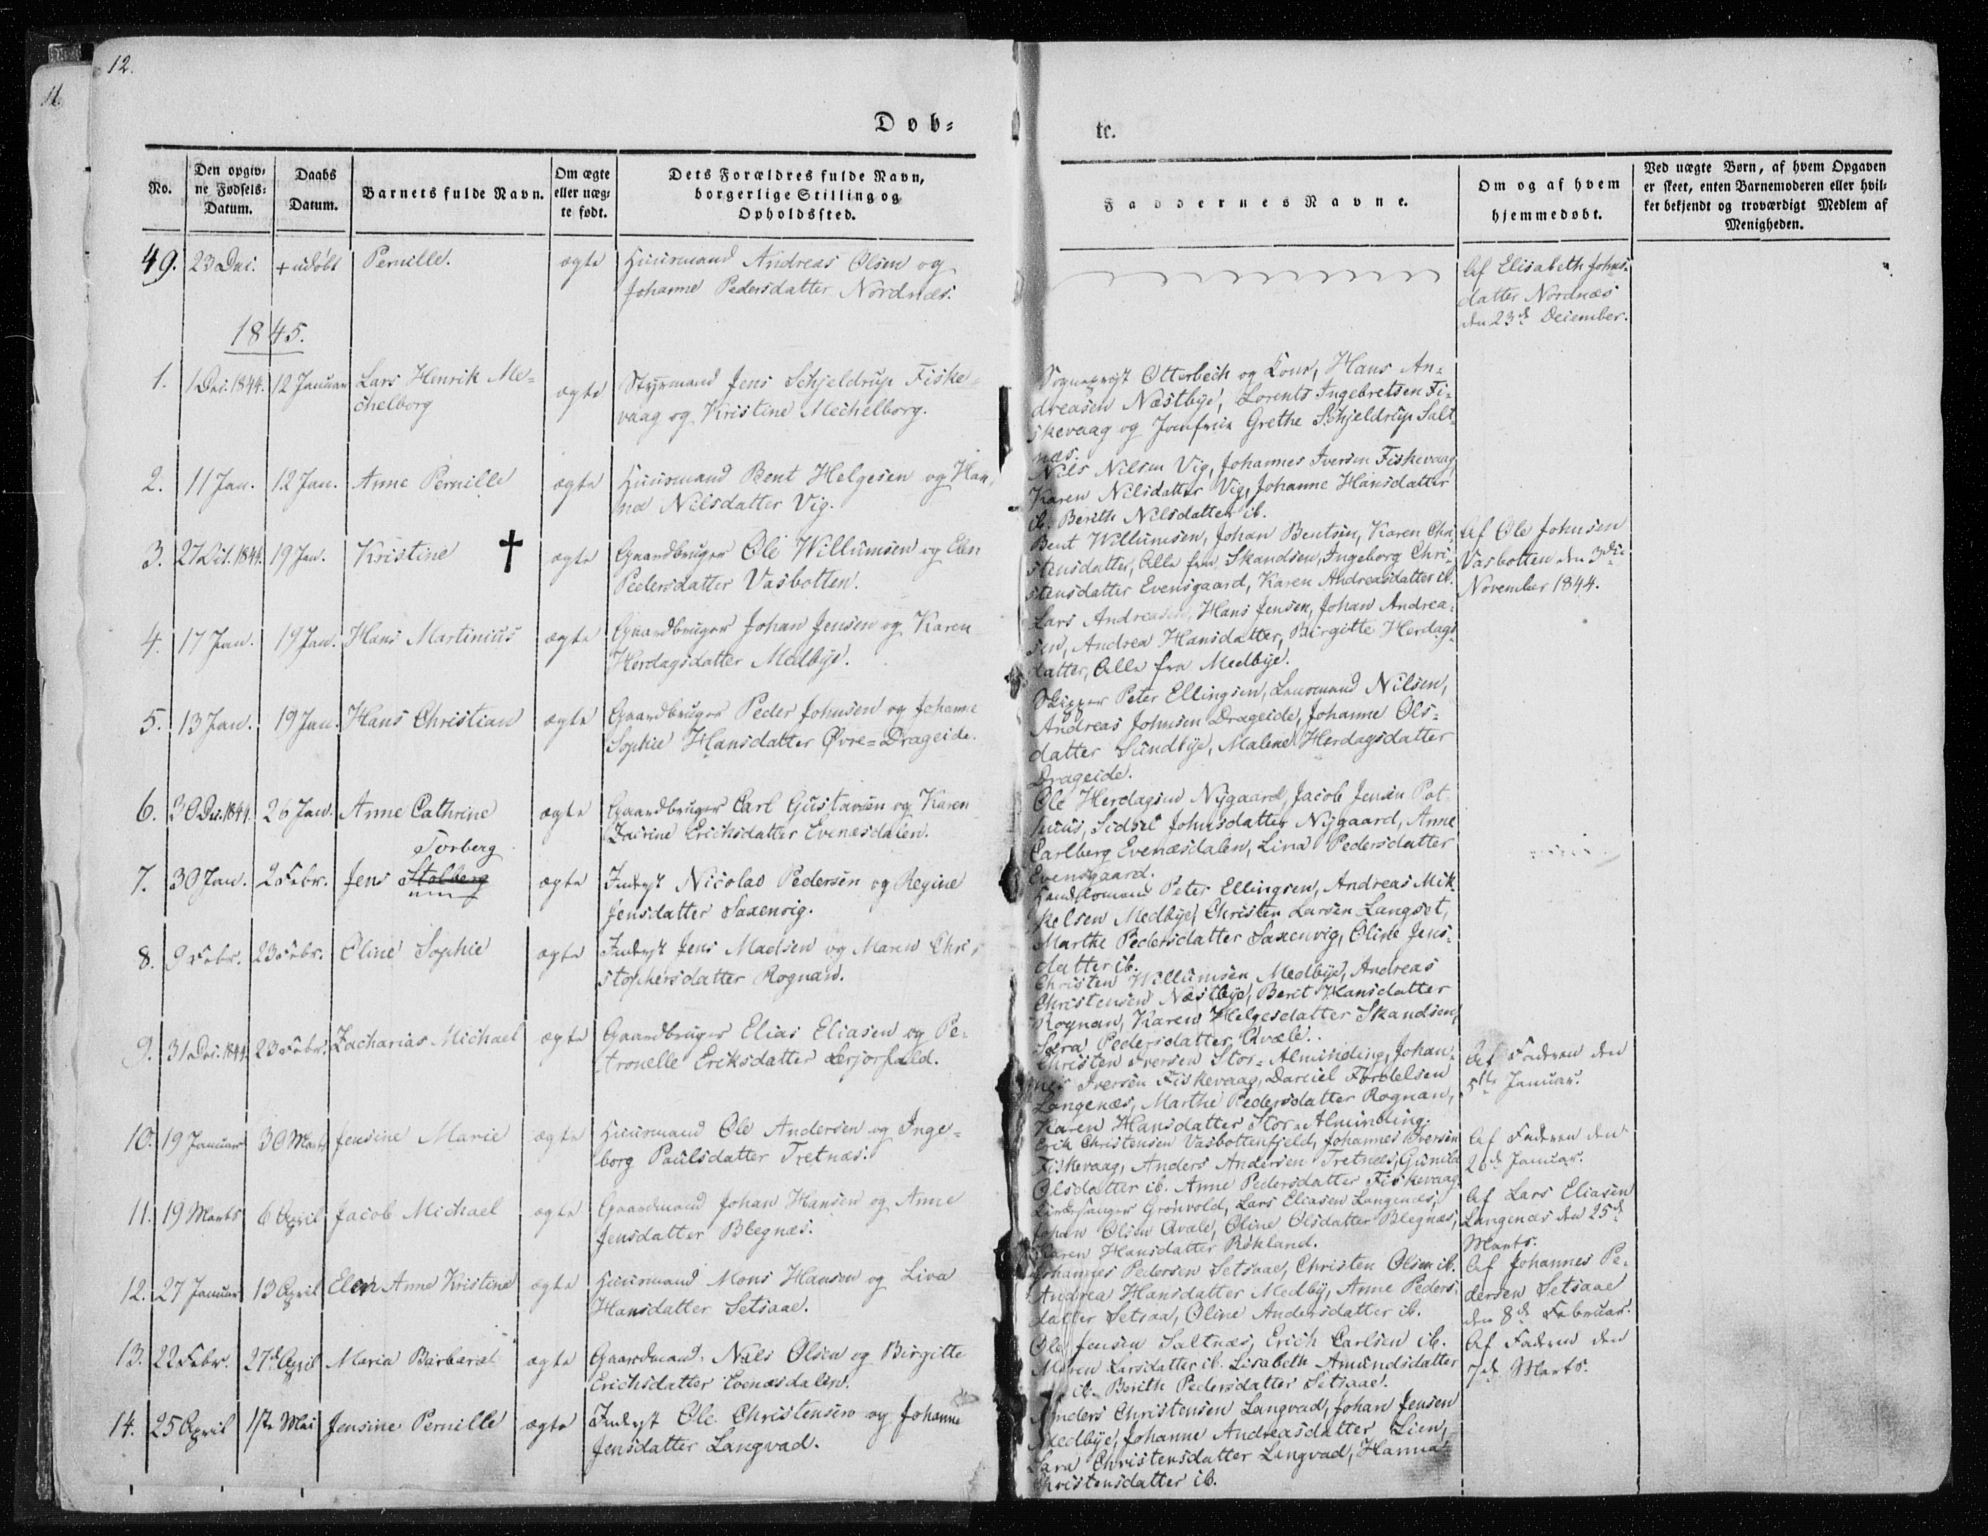 11.
12.
Døb=
te.
No.
Den opgiv=
ne Fødsels=
Datum.
Daabs
Datum.
Barnets fulde Navn.
Om ægte
eller uæg=
te født.
Dets Forældres fulde Navn,
borgerlige Stilling og
Opholdssted.
Faddernes Navne.
Om og af hvem
hjemmedøbt.
Ved uægte Børn, af hvem Opgaven
er skeet, enten Barnemoderen eller hvil=
ket bekjendt og troværdigt Medlem af
Menigheden.
49. 23 Dec. + udøbt Pernille. ægte Huusmand Andreas Olsen og
Johanne Pedersdatter Nordnæs.
Af Elisabeth Johns=
datter Nordnæs
den 23de December.
1845.
1. 1 Dec. 1844. 12 Januar Lars Henrik Me=
chelborg
ægte Styrmand Jens Schjeldrup Fiske=
vaag og Kristine Mechelborg.
Sogneprest Otterbech og Kone, Hans An=
dreasen Næstbye, Lorents Ingebretsen Fi=
skevaag og Jomfrue Grethe Schjeldrup Salt
næs.
2. 11 Jan. 12 Jan. Anne Pernille ægte Huusmand Bent Helgesen og Han=
na Nilsdatter Vig.
Nils Nilsen Vig, Johannes Iversen Fiskevaag
Karen Nilsdatter Vig, Johanne Hansdatter
ib. Berith Nilsdatter ib.
3. 27 Oct. 1844. 19 Jan. Kristine ✝ ægte Gaardbruger Ole Willumsen og Elen
Pedersdatter Vasbotten.
Bent Willumsen, Johan Bentsen, Karen Chri=
stensdatter, Alle fra Skandsen, Ingeborg Chri=
stensdatter Evensgaard, Karen Andreasdatter ib.
Af Ole Johnsen
Vasbotten den 3die
November 1844.
4. 17 Jan. 19 Jan. Hans Martinius ægte Gaardbruger Johan Jensen og Karen
Herdagsdatter Medbye.
Lars Andreasen, Hans Jensen, Johan Andrea=
sen, Andrea Hansdatter, Birgitte Herdags=
datter, Alle fra Medbye.
5. 13 Jan. 19 Jan. Hans Christian ægte Gaardbruger Peder Johnsen og Johanne
Sophie Hansdatter Øvre=Drageide.
Skipper Peter Ellingsen, Lensmand Nilsen,
Andreas Johnsen Drageide, Johanne Ols=
datter Sundbye, Malene Herdagsdatter
Drageide.
6. 30 Dec. 1844. 26 Jan. Anne Cathrine ægte Gaardbruger Carl Gustavsen og Karen
Erichsdatter Evenæsdalen.
Ole Herdagsen Nygaard, Jacob Jensen Pot=
huus, Sidsel Johnsdatter Nygaard, Anne
Carlberg Evenæsdalen, Lina Pedersdatter
Evensgaard.
7. 30 Jan. 2 Febr. Jens Stolberg
Torberg
ægte Inderst Nicolas Pedersen og Regine
Jensdatter Saxenvig.
Peter Ellingsen, Andreas Mik=
kelsen Medbye, Christen Larsen Langset,
Marthe Pedersdatter Saxenvig, Oline Jens=
datter ib.
8. 9 Febr. 23 Febr. Oline Sophie ægte Inderst Jens Madsen og Maren Chri=
stophersdatter Rognan.
Christen Willumsen Medbye, Andreas
Christensen Næstbye, Berit Hansdatter
Rognan, Karen Helgesdatter Skandsen,
Sara Pedersdatter Qvæle.
9. 31 Dec. 1844. 23 Febr. Zacharias Michael ægte Gaardbruger Elias Eliasen og Pe=
tronelle Eriksdatter
Christen Iversen Stor=Alminding, Johan=
nes Iversen Fiskevaag, Daniel
Langenæs, Marthe Pedersdatter Rognan,
Karen Hansdatter Stor=Alminding.
Af Faderen den
5te Januar.
10. 19 Januar 30 Marts Jensine Marie ægte Huusmand Ole Andersen og Inge=
borg Paulsdatter Tretnæs.
Erik Christensen Vasbottenfjeld, Johannes Iversen
Fiskevaag, Anders Andersen Tretnæs, Gunild
Olsdatter ib. Anne Pedersdatter Fiskevaag.
Af Faderen den
20de Januar.
11. 19 Marts 6 April Jacob Michael ægte Gaardmand Johan Hansen og Anne
Jensdatter Blegnæs.
Kirkesanger Grønvold, Lars Eliasen Langenæs,
Johan Olsen Qvale, Oline Olsdatter Blegnæs,
Karen Hansdatter Røkland.
Af Lars Eliasen
Langenæs den 25de
Marts.
12. 27 Januar 13 April Elen Anne Kristine ægte Huusmand Mons Hansen og Liva
Hansdatter Setsaae.
Johannes Pedersen Setsaae, Christen Olsen ib.
Andrea Hansdatter Medby, Anne Peders=
datter Setsaa, Oline Andersdatter ib.
Af Johannes Pe=
dersen Setsaae
den 8de Februar.
13. 22 Febr. 27de April Maria Barbara ægte Gaardmand Nils Olsen og Birgitte
Erichsdatter Evenæsdalen.
Ole Jensen Saltnæs, Erich Carlsen ib.
Maren Larsdatter ib. Lisabeth Amundsdatter
ib. Berith Pedersdatter Setsaae.
Af Faderen den
7de Marts.
14. 25 April 1ste Mai Jensine Pernille ægte Inderst Ole Christensen og Johanne
Jensdatter Langvad.
Anders Christensen Langvad, Johan Jensen
Medbye, Johanne Andreasdatter Lien,
Sara Christensdatter Langvad, Hanna
Christensdatter ib.